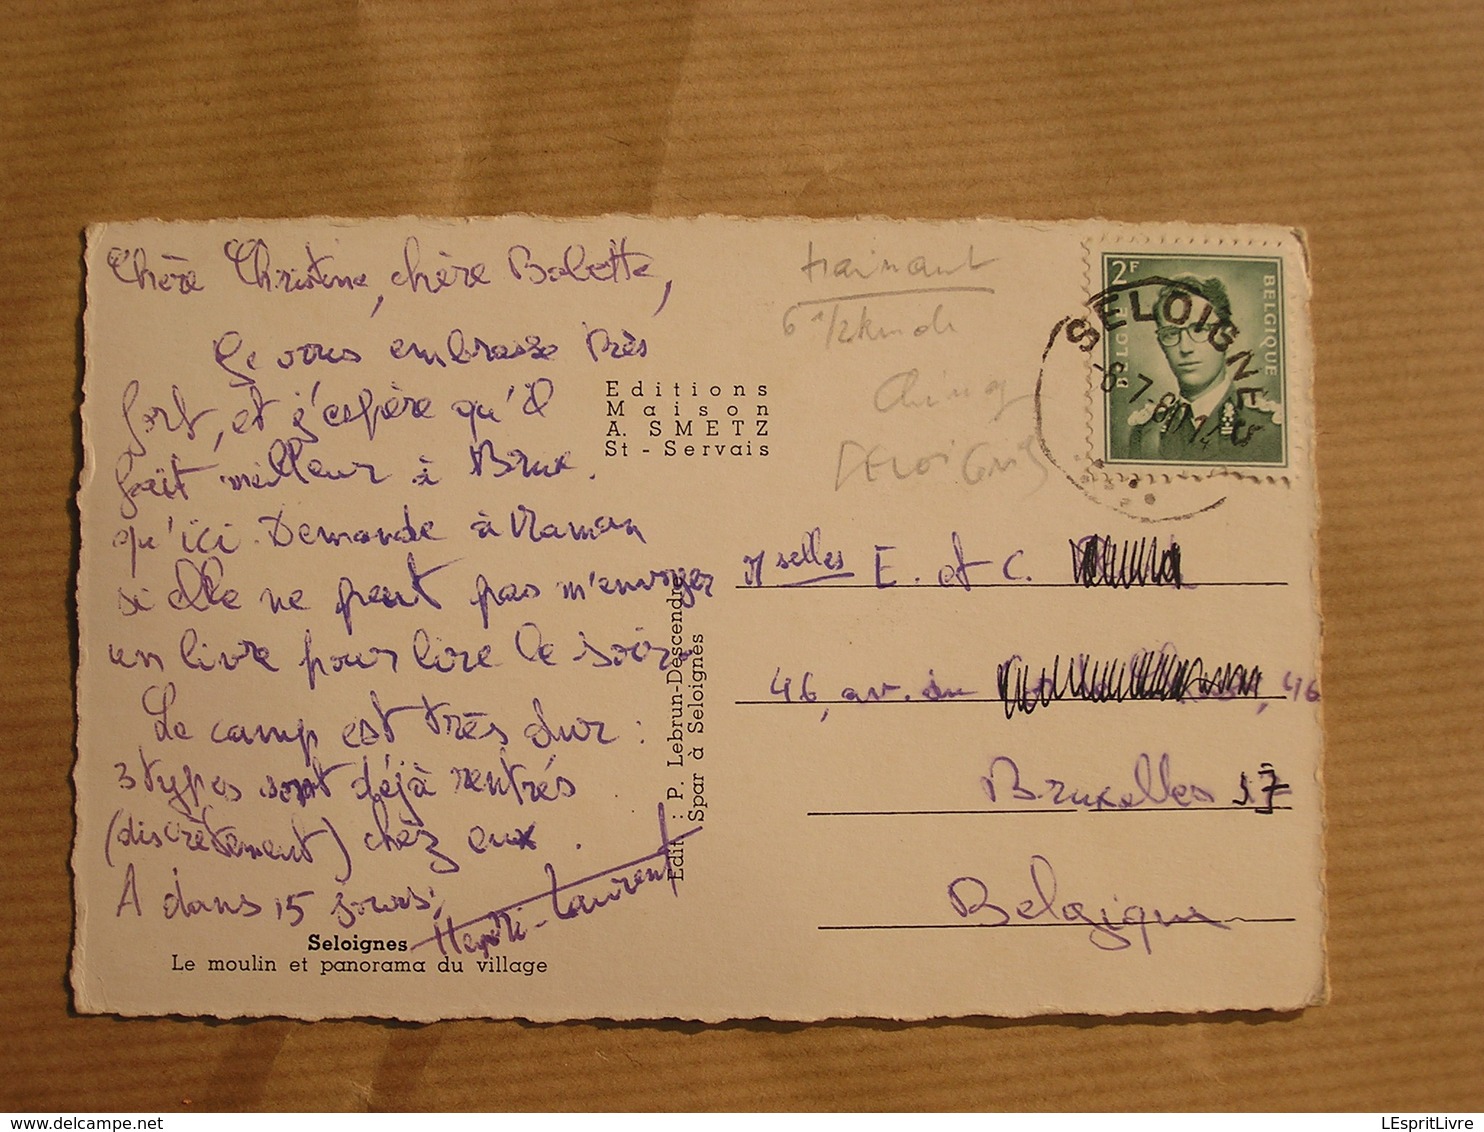 Chère Christine, chère Babette,
Je vous embrasse très
fort, et j'espère qu'il
fait meilleur à Brux.
qu'ici. Demande à Maman
si elle ne peut pas m'envoyer
un livre pour lire le soir.
Le camp est très dur :
3 types sont déjà rentrés
(discrètement) chez eux.
A dans 15 jours,
Henri-Laurent
Seloignes
Le moulin et panorama du village
Editions
Maison
A. SMETZ
St - Servais
Edit. : P. Lebrun-Descendre
Spar à Seloignes
Hainaut
6 1/2
SELOIGNES
2F
BELGIE BELGIQUE
SELOIGNE
-8-7-60
Mselles E. et C.
46, av. du , 46
Bruxelles 17
Belgique
delcampe.net
LEspritLivre